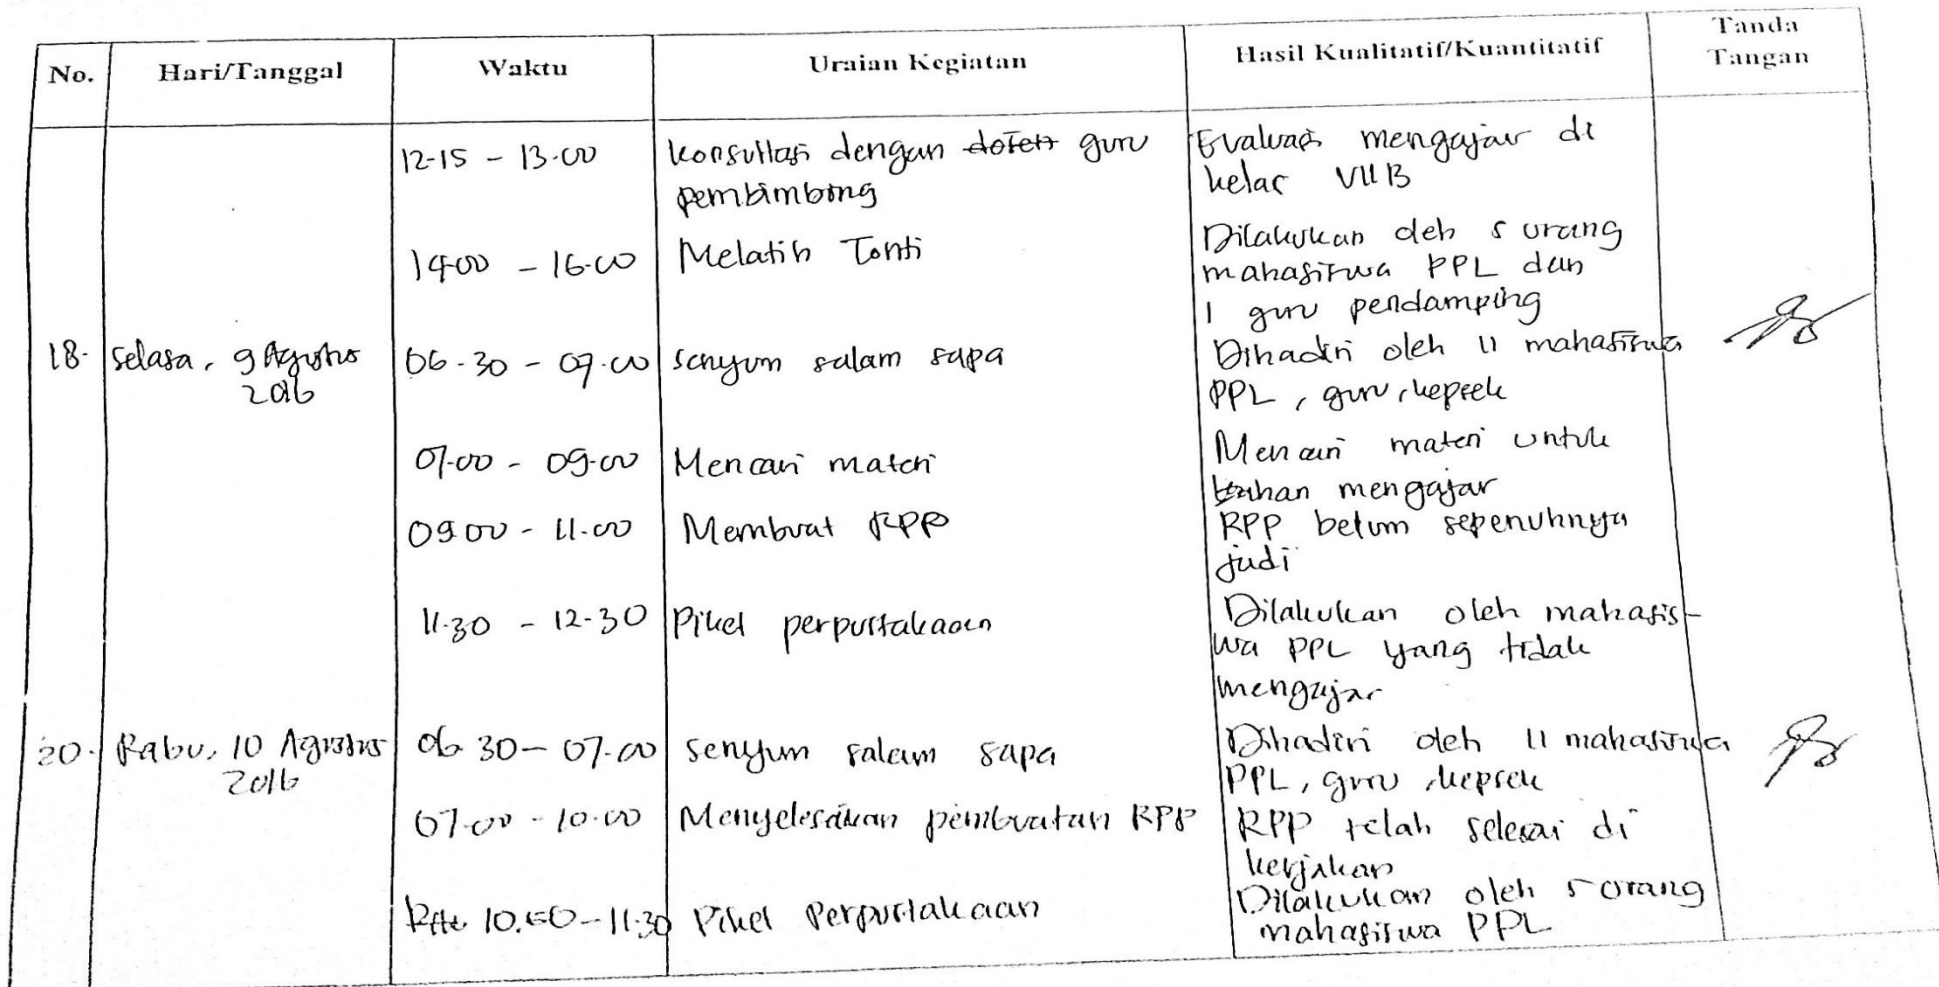 No. Hari/Tanggal Waktu Uraian Kegiatan Hasil Kualitatif/Kuantitatif Tanda
Tangan
12.15 - 13.00 Konsultasi dengan dosen guru Evaluasi mengajar di
pembimbing kelas VII B
14.00 - 16.00 Melatih Tonti Dilakukan oleh 5 orang
mahasiswa PPL dan
1 guru pendamping
18. Selasa, 9 Agustus 06.30 - 07.00 senyum salam sapa Dihadiri oleh 11 mahasiswa
2016 PPL, guru, kepsek
07.00 - 09.00 Mencari materi Mencari materi untuk
bahan mengajar
09.00 - 11.00 Membuat RPP RPP belum sepenuhnya
jadi
11.30 - 12.30 Piket perpustakaan Dilakukan oleh mahasis-
wa PPL yang tidak
mengajar
20. Rabu, 10 Agustus 06.30 - 07.00 senyum salam sapa Dihadiri oleh 11 mahasiswa
2016 PPL, guru, kepsek
07.00 - 10.00 Menyelesaikan pembuatan RPP RPP telah selesai di
kerjakan
11.30 Piket Perpustakaan Dilakukan oleh 5 orang
mahasiswa PPL